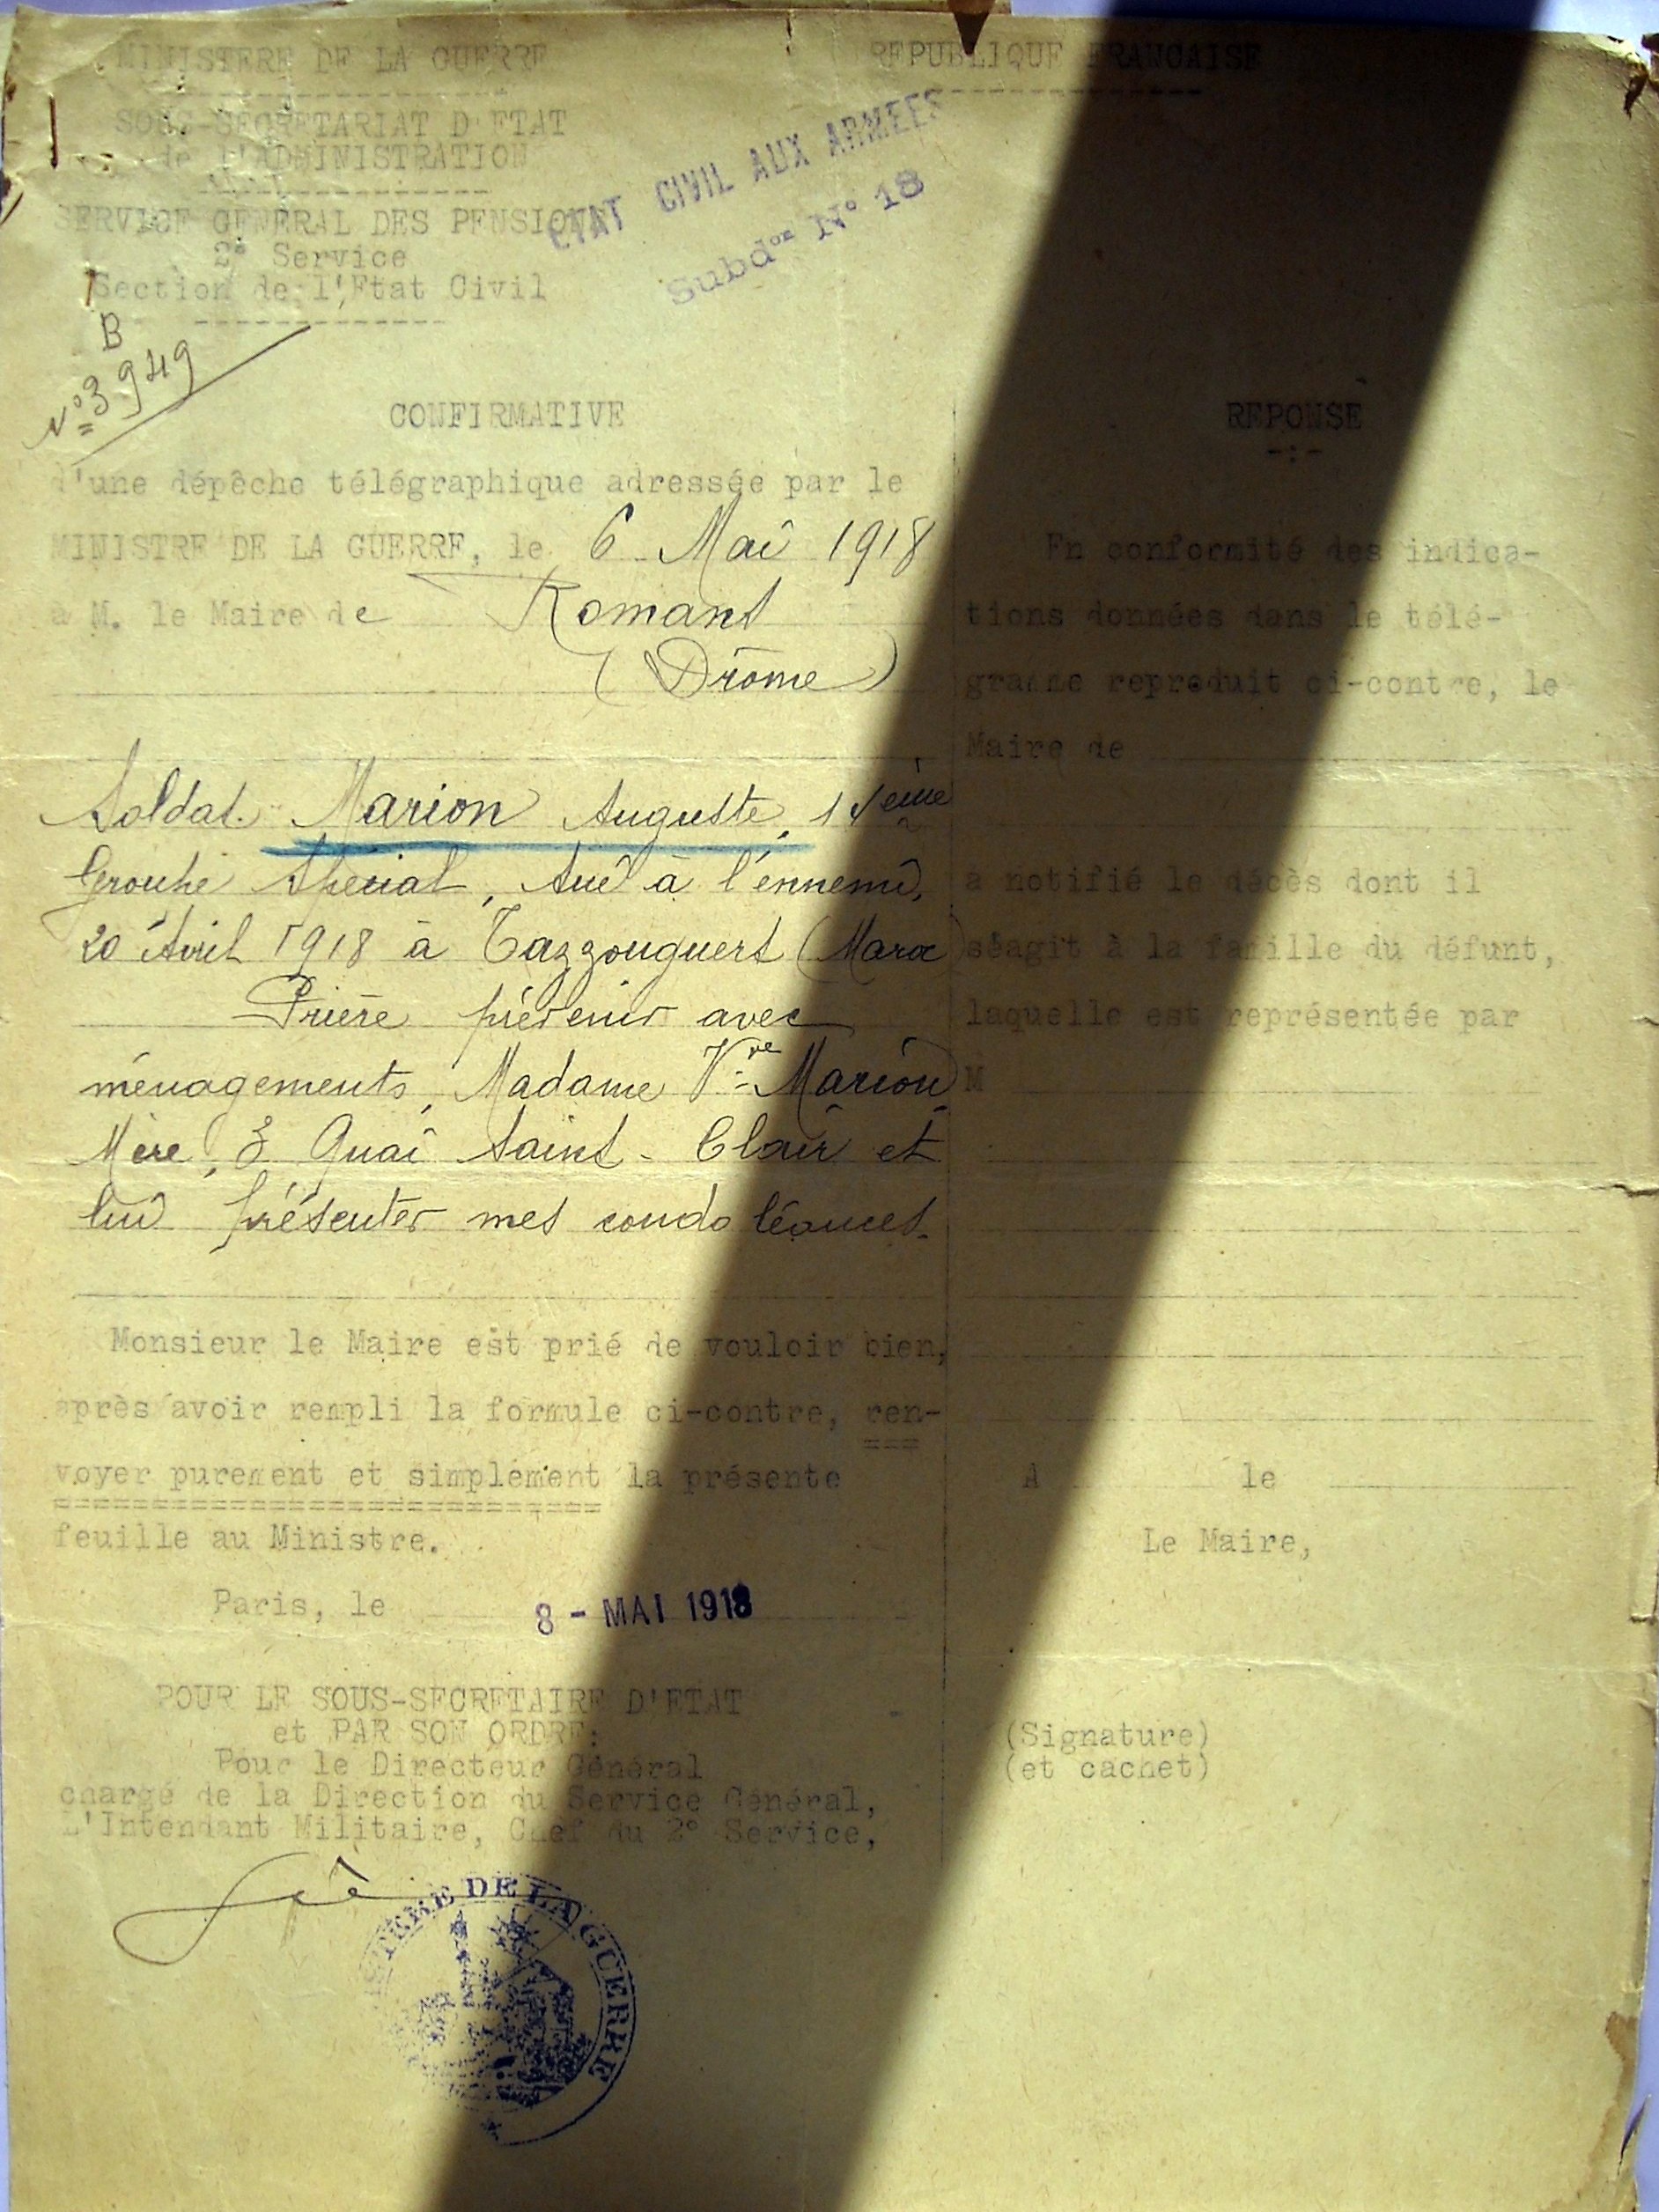 MINISTERE DE LA GUERRE
REPUBLIQUE FRANCAISE
SOUS-SECRETARIAT D'ETAT
de l'ADMINISTRATION
SERVICE GENERAL DES PENSIONS
2° Service
Section de l'Etat Civil
ETAT CIVIL AUX ARMEES
Subdon N° 18
B
N° 3949
CONFIRMATIVE
d'une dépêche télégraphique adressée par le
MINISTRE DE LA GUERRE, le 6 Mai 1918
à M. le Maire de Romans
(Drôme)
Soldat Marion Auguste,
Groupe Spécial, tué à l'ennemi,
20 Avril 1918 à Tazzouguert (Maroc
Prière prévenir avec
ménagements, Madame Vve Marion
Mère, 3 Quai Saint-Clair et
lui présenter mes condoléances.
Monsieur le Maire est prié de vouloir bien,
après avoir rempli la formule ci-contre, ren-
voyer purement et simplement la présente
feuille au Ministre.
Paris, le 8 - MAI 1918
POUR LE SOUS-SECRETAIRE D'ETAT
et PAR SON ORDRE:
Pour le Directeur Général
chargé de la Direction du Service Général,
L'Intendant Militaire, Chef du 2° Service,
MINISTERE DE LA GUERRE
REPONSE
-:-
En conformité des indica-
tions données dans le télé-
gramme reproduit ci-contre, le
Maire de
a notifié le décès dont il
séagit à la famille du défunt,
laquelle est représentée par
M
A le
Le Maire,
(Signature)
(et cachet)